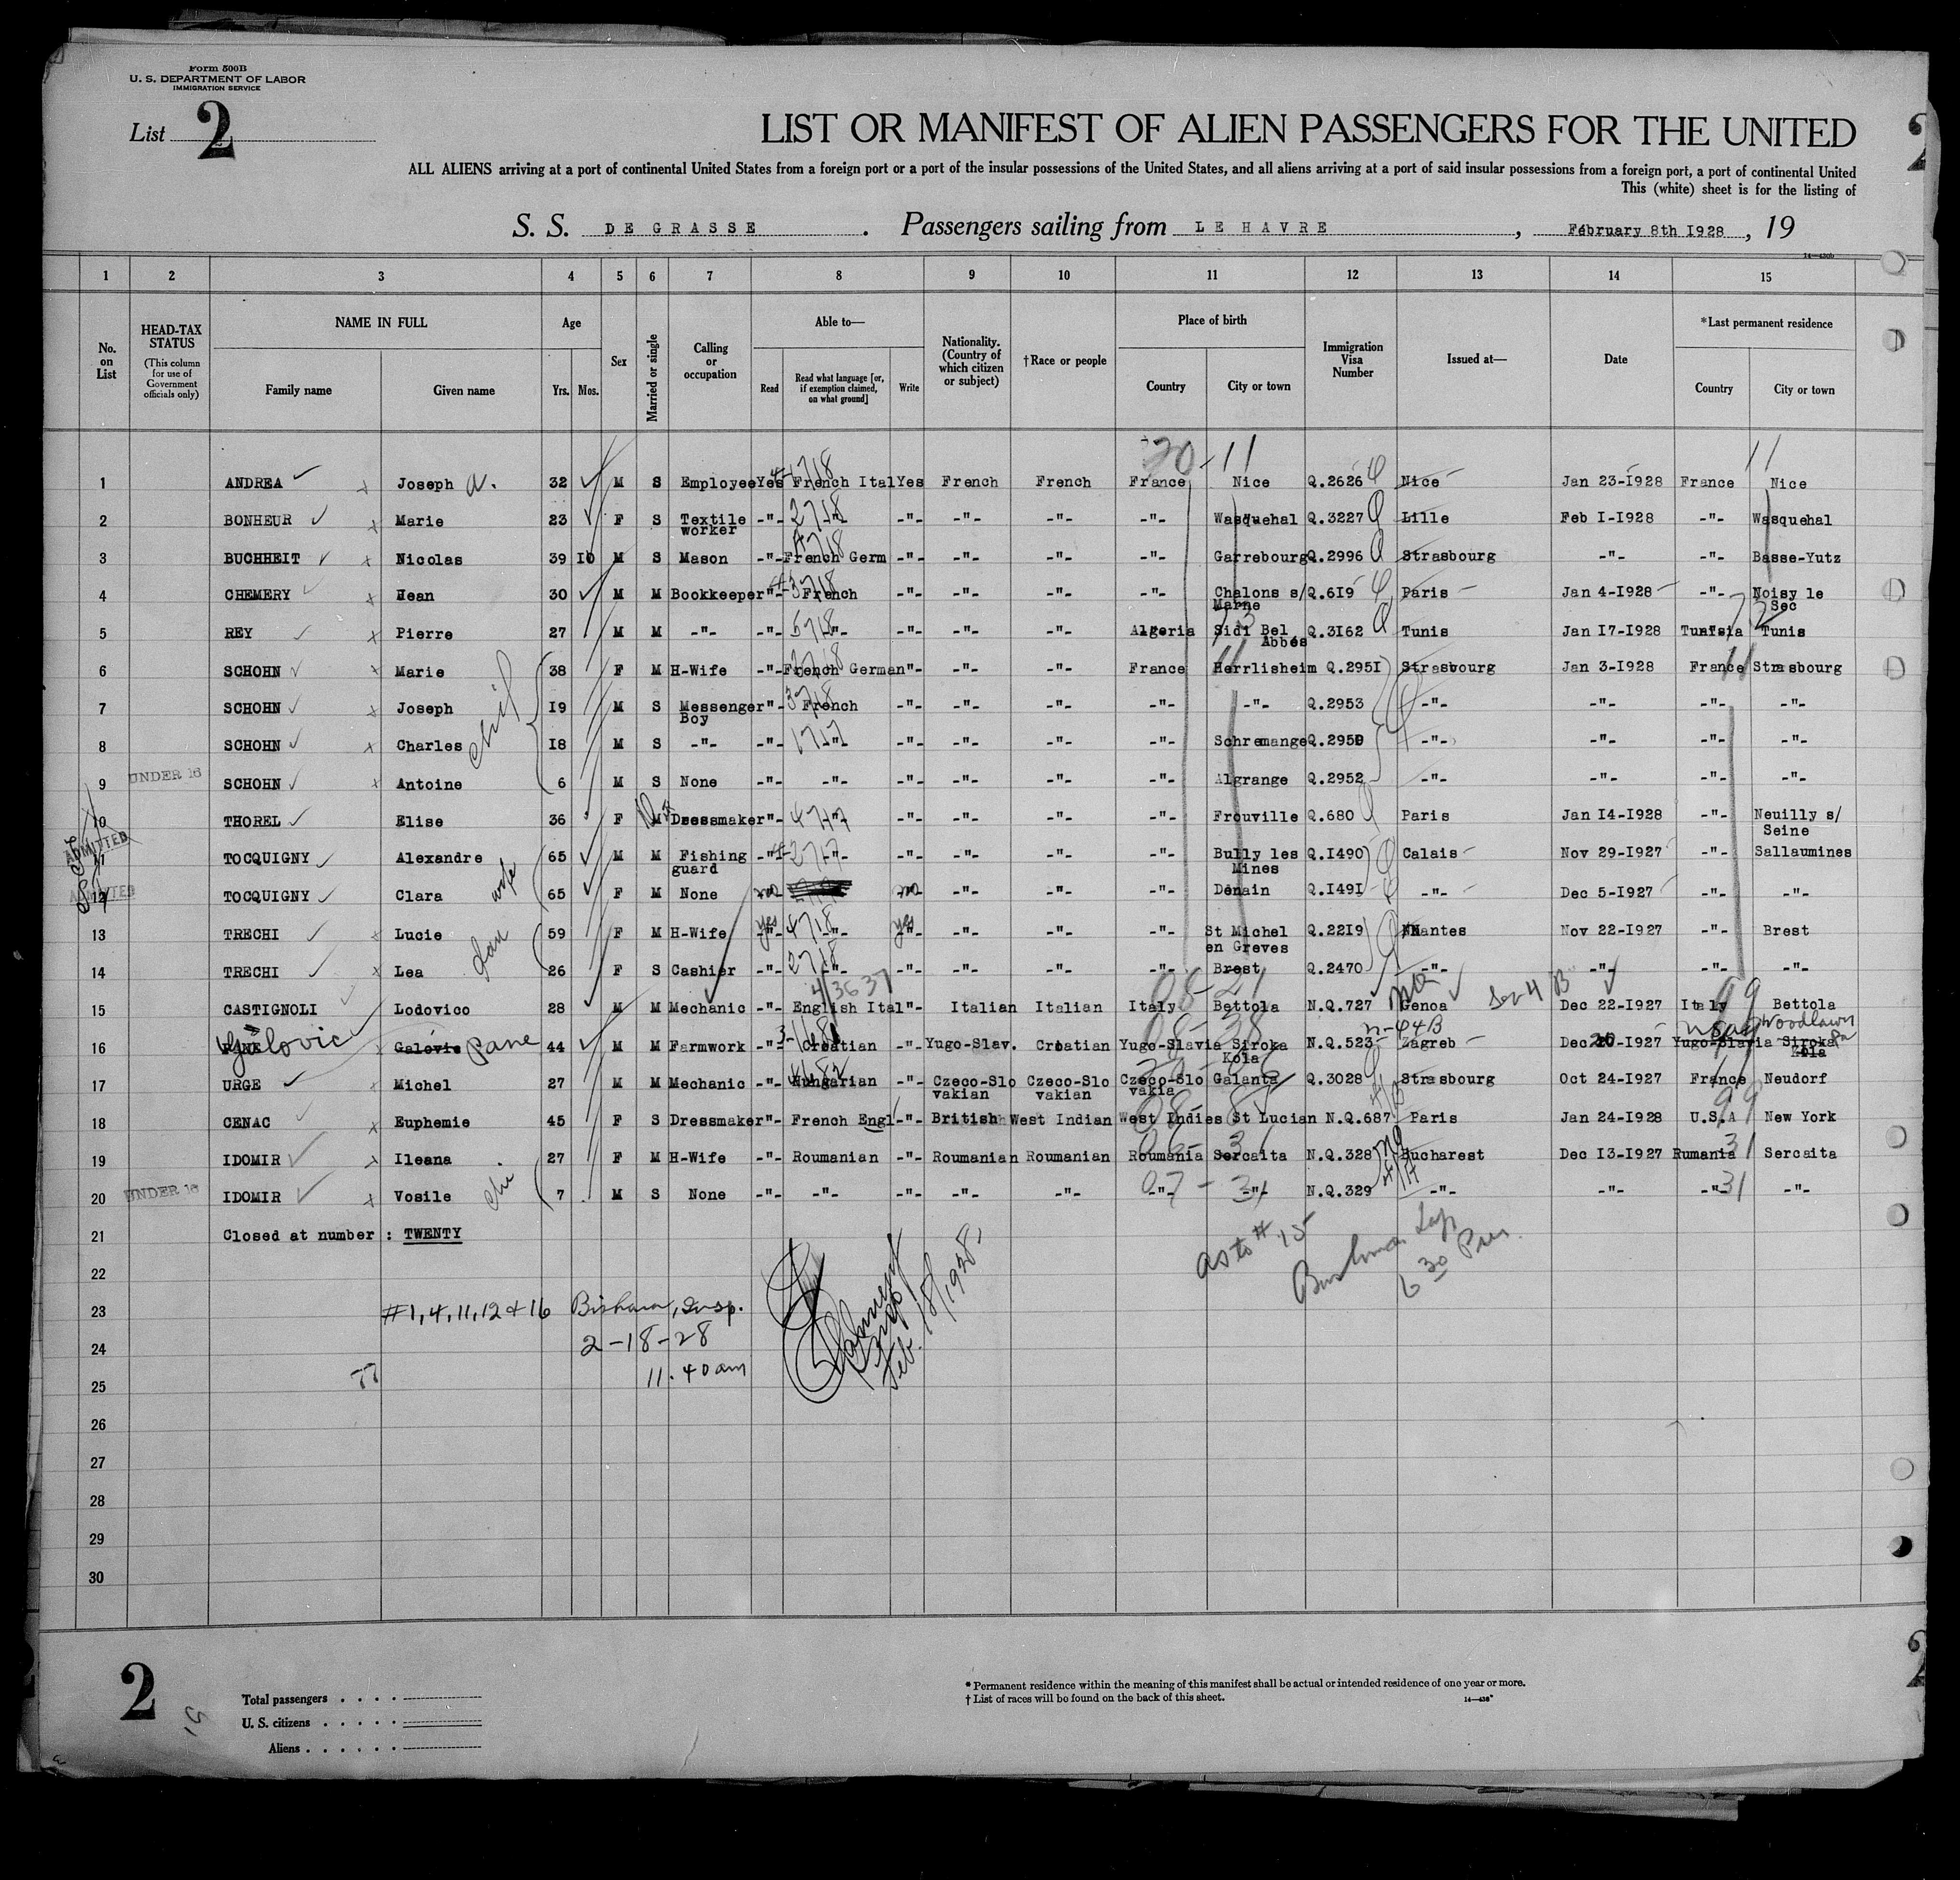 Form 500B
U. S. DEPARTMENT OF LABOR
IMMIGRATION SERVICE
List 2
LIST OR MANIFEST OF ALIEN PASSENGERS FOR THE UNITED
ALL ALIENS arriving at a port of continental United States from a foreign port or a port of the insular possessions of the United States, and all aliens arriving at a port of said insular possessions from a foreign port, a port of continental United
This (white) sheet is for the listing of
S. S. DE GRASSE. Passengers sailing from LE HAVRE, February 8th I928, 19
14—430b
1 2 3 4 5 6 7 8 9 10 11 12 13 14 15
No. on List
HEAD-TAX STATUS (This column for use of Government officials only)
NAME IN FULL Family name Given name
Age Yrs. Mos.
Sex
Married or single
Calling or occupation
Able to— Read Read what language [or, if exemption claimed, on what ground] Write
Nationality. (Country of which citizen or subject)
†Race or people
Place of birth Country City or town
Immigration Visa Number
Issued at—
Date
*Last permanent residence Country City or town
20-11 11
1 ANDREA Joseph a. 32 M S Employee Yes French Ital Yes French French France Nice Q.2626 Nice Jan 23-I928 France Nice
2 BONHEUR Marie 23 F S Textile worker -"- -"- -"- -"- -"- -"- Wasquehal Q.3227 Lille Feb I-I928 -"- Wasquehal
3 BUCHHEIT Nicolas 39 I0 M S Mason -"- French Germ -"- -"- -"- -"- Garrebourg Q.2996 Strasbourg -"- -"- Basse-Yutz
4 CHEMERY Jean 30 M M Bookkeeper "- French -"- -"- -"- -"- Chalons s/ Marne Q.6I9 Paris Jan 4-I928 -"- Noisy le Sec
5 REY Pierre 27 M M -"- -"- -"- -"- -"- -"- Algeria Sidi Bel Abbés Q.3I62 Tunis Jan I7-I928 Tunisia Tunis
6 SCHOHN Marie 38 F M H-Wife -"- French German "- -"- -"- France Herrlisheim Q.295I Strasbourg Jan 3-I928 France Strasbourg
7 SCHOHN Joseph I9 M S Messenger Boy "- French -"- -"- -"- -"- -"- Q.2953 -"- -"- -"- -"-
8 SCHOHN Charles I8 M S -"- -"- -"- -"- -"- -"- -"- Schremange Q.2950 -"- -"- -"- -"-
9 UNDER 16 SCHOHN Antoine 6 M S None -"- -"- -"- -"- -"- -"- Algrange Q.2952 -"- -"- -"- -"-
10 THOREL Elise 36 F M Dressmaker "- -"- -"- -"- -"- -"- Frouville Q.680 Paris Jan I4-I928 -"- Neuilly s/ Seine
ADMITTED
11 TOCQUIGNY Alexandre 65 M M Fishing guard -"- -"- -"- -"- -"- -"- Bully les Mines Q.I490 Calais Nov 29-I927 -"- Sallaumines
ADMITTED
12 TOCQUIGNY Clara wife 65 F M None no no -"- -"- -"- Denain Q.I49I -"- Dec 5-I927 -"- -"-
13 TRECHI Lucie 59 F M H-Wife yes -"- yes -"- -"- -"- St Michel en Greves Q.22I9 Nantes Nov 22-I927 -"- Brest
14 TRECHI Lea 26 F S Cashier -"- -"- -"- -"- -"- -"- Brest Q.2470 -"- -"- -"- -"-
15 CASTIGNOLI Lodovico 28 M M Mechanic -"- English Ital "- Italian Italian Italy Bettola N.Q.727 Genoa Dec 22-I927 Italy Bettola
16 Galovic Galovic Pane 44 M M Farmwork -"- Croatian -"- Yugo-Slav. Croatian Yugo-Slavia Siroka Kola N.Q.523 Zagreb Dec 20-I927 Yugo-Slavia Siroka Kola Woodlawn Pa
17 URGE Michel 27 M M Mechanic -"- Hungarian -"- Czeco-Slo vakian Czeco-Slo vakian Czeco-Slo vakia Galanta Q.3028 Strasbourg Oct 24-I927 France Neudorf
18 CENAC Euphemie 45 F S Dressmaker "- French Engl -"- British West Indian West Indies St Lucian N.Q.687 Paris Jan 24-I928 U.S.A New York
19 IDOMIR Ileana 27 F M H-Wife -"- Roumanian -"- Roumanian Roumanian Roumania Sercaita N.Q.328 Bucharest Dec I3-I927 Rumania Sercaita
20 UNDER 16 IDOMIR Vosile 7 M S None -"- -"- -"- -"- -"- -"- -"- N.Q.329 -"- -"- -"- -"-
21 Closed at number : TWENTY
22
as to # 15
23 #1, 4, 11, 12 & 16
24 2-18-28
Feb. 18/1928
25 77 11.40 am
26
27
28
29
30
2
Total passengers
U. S. citizens
Aliens
* Permanent residence within the meaning of this manifest shall be actual or intended residence of one year or more.
† List of races will be found on the back of this sheet.